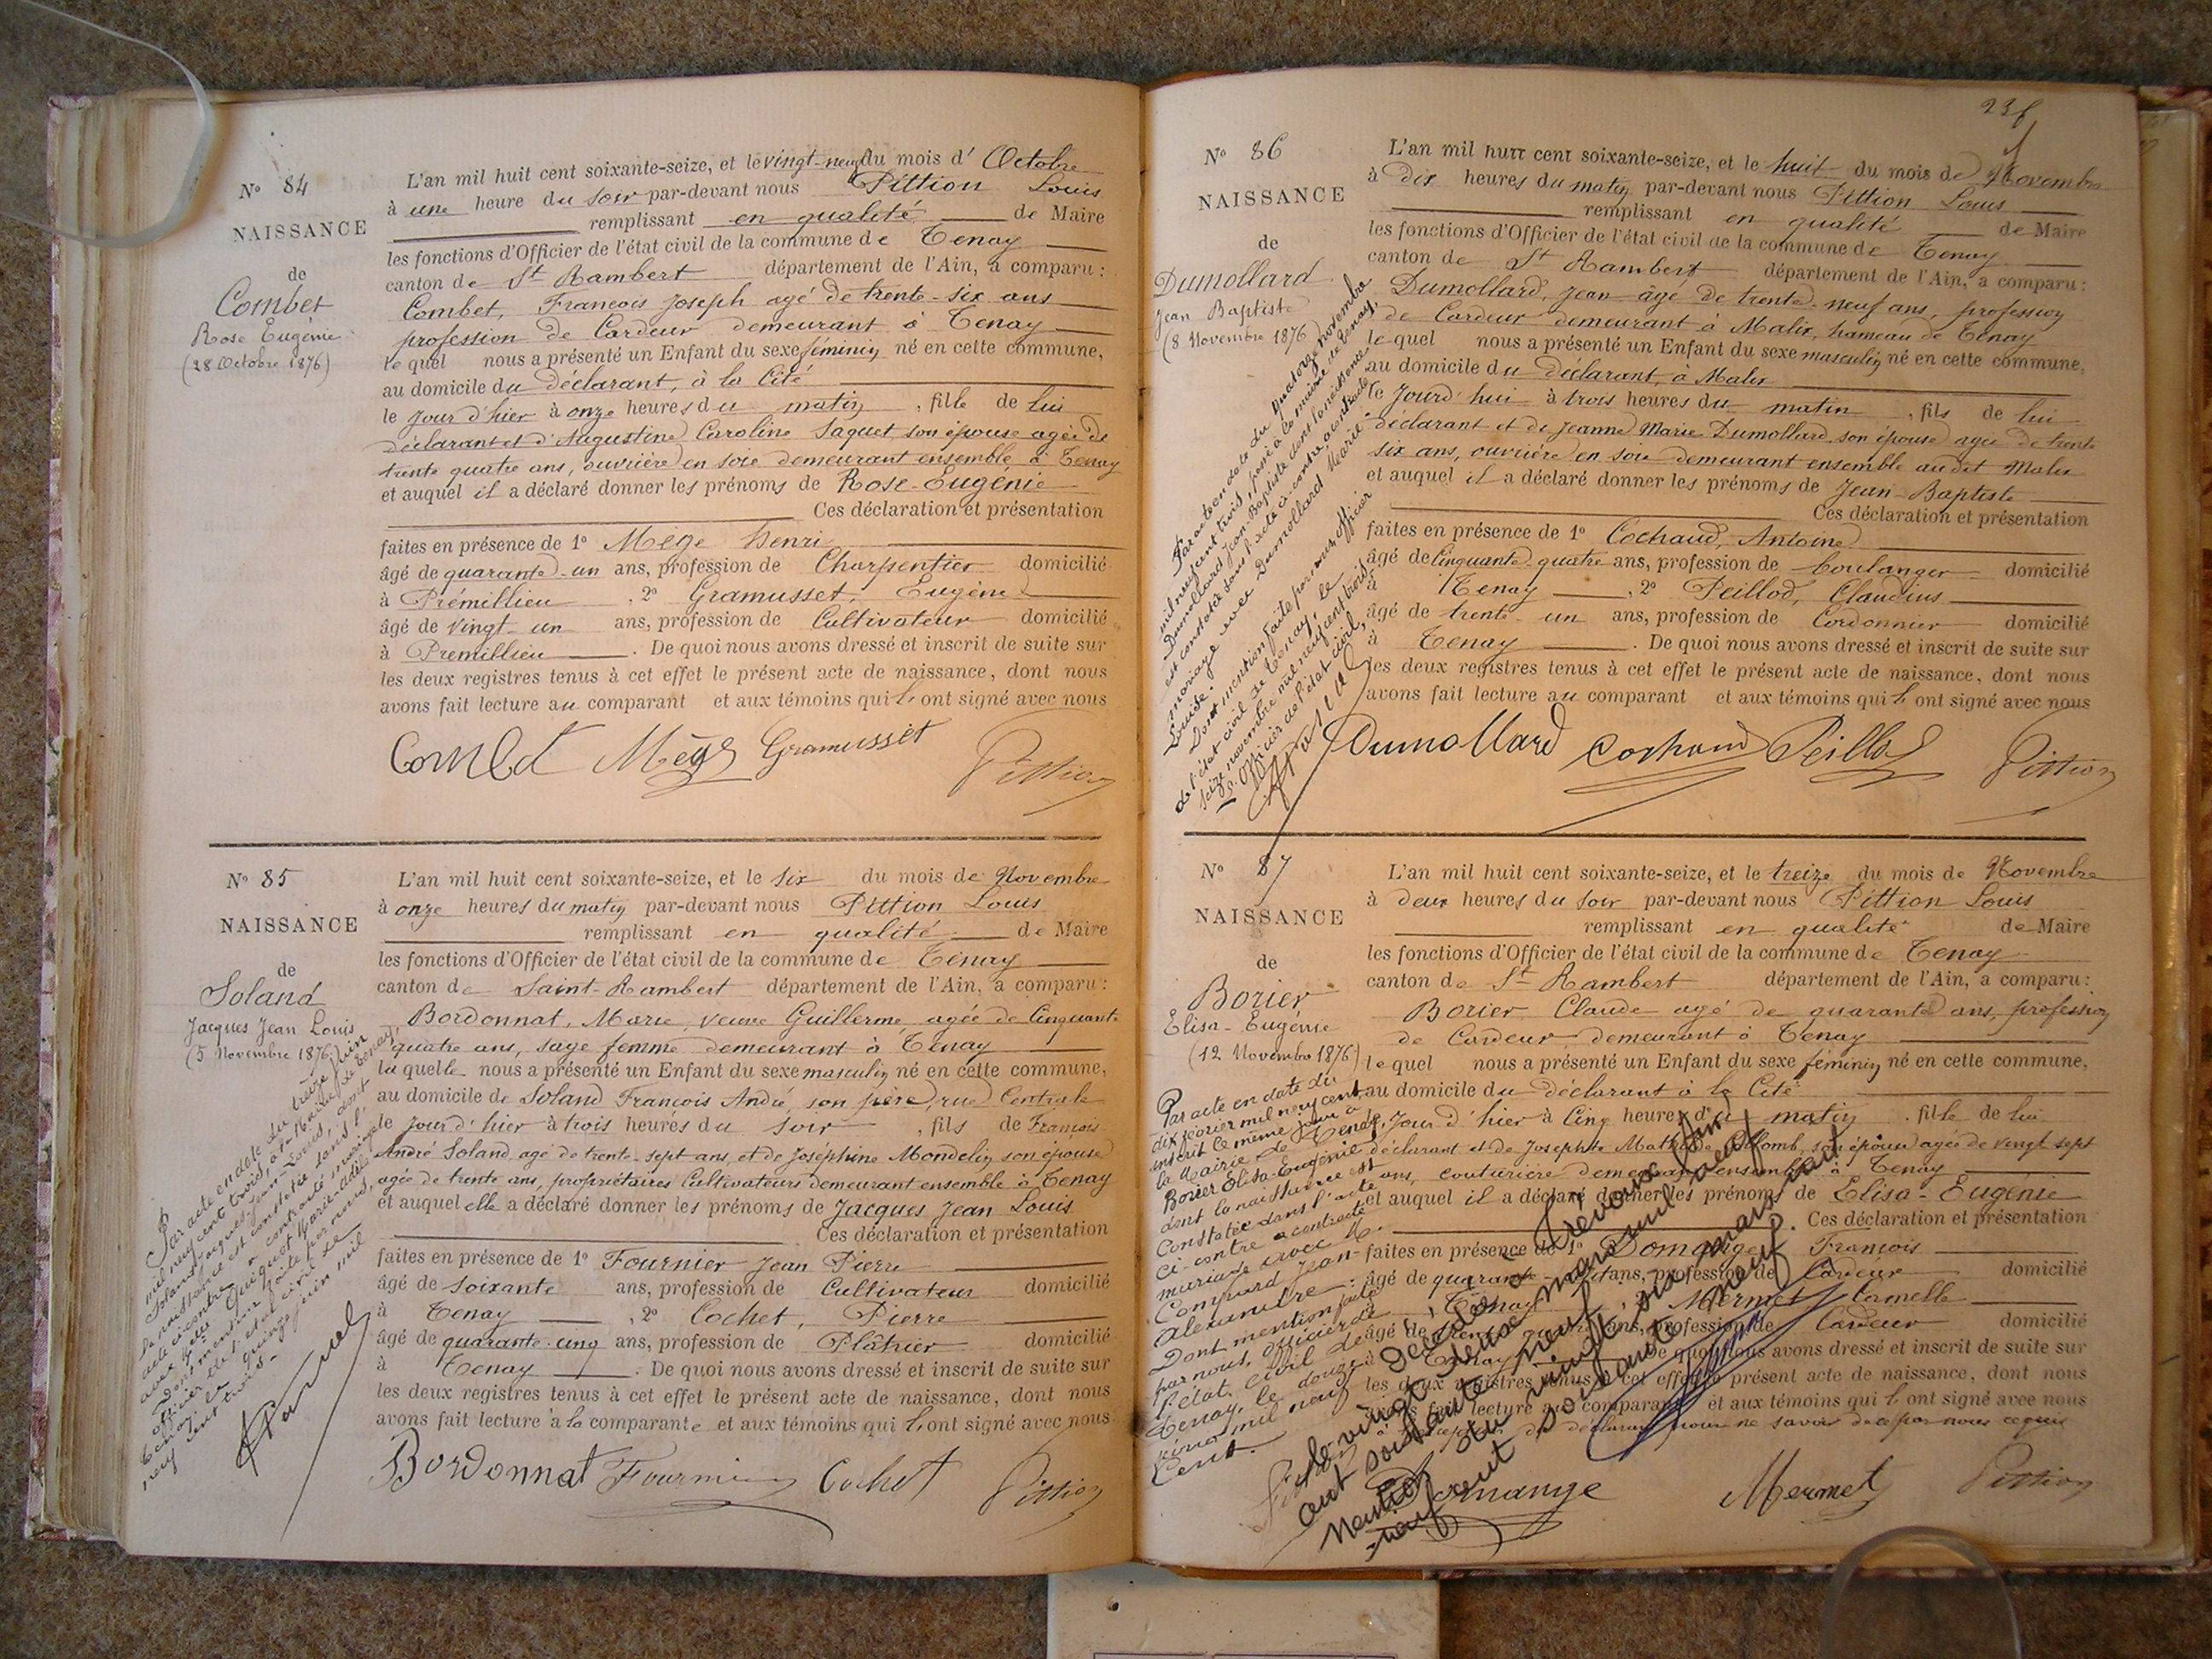 Nº 84
NAISSANCE
de
Combet
Rose Eugènie
(28 Octobre 1876)
L'an mil huit cent soixante-seize, et le vingt-neuf du mois d' Octobre
à une heure du soir par-devant nous Pittion Louis
remplissant en qualité de Maire
les fonctions d'Officier de l'état civil de la commune de Tenay
canton de St Rambert département de l'Ain, a comparu :
Combet, François Joseph agé de trente-six ans
profession de Cardeur demeurant à Tenay
le quel nous a présenté un Enfant du sexe féminin né en cette commune,
au domicile du déclarant, à la Cité
le jour d'hier à onze heures du matin , fille de lui
déclarant et d'Augustine Caroline Saquet, son épouse agée de
trente quatre ans, ouvrière en soie demeurant ensemble à Tenay
et auquel il a déclaré donner les prénoms de Rose-Eugènie
Ces déclaration et présentation
faites en présence de 1º Mège Henri
âgé de quarante-un ans, profession de Charpentier domicilié
à Prémillieu , 2º Gramusset, Eugène
âgé de vingt-un ans, profession de Cultivateur domicilié
à Premillieu . De quoi nous avons dressé et inscrit de suite sur
les deux registres tenus à cet effet le présent acte de naissance, dont nous
avons fait lecture au comparant et aux témoins qui l'ont signé avec nous
Combet Mège Gramusset Pittion
Nº 85
NAISSANCE
de
Soland
Jacques Jean Louis
(5 Novembre 1876)
Par acte en date du treize juin
mil neuf cent trois, à la Mairie de Tenay,
Soland Jacques-Jean-Louis, dont
la naissance est constatée dans l'
acte ci-contre, a contracté mariage
avec Mlle Marie-Adèle
Dont mention faite par nous,
officier de l'état civil de
Tenay, le quinze juin mil
neuf cent trois.
L'an mil huit cent soixante-seize, et le six du mois de Novembre
à onze heures du matin par-devant nous Pittion Louis
remplissant en qualité de Maire
les fonctions d'Officier de l'état civil de la commune de Tenay
canton de Saint-Rambert département de l'Ain, a comparu :
Bordonnat, Marie, veuve Guillerme agée de Cinquante
quatre ans, sage femme demeurant à Tenay
la quelle nous a présenté un Enfant du sexe masculin né en cette commune,
au domicile de Soland François André, son père, rue Centrale
le jour d'hier à trois heures du soir , fils de François
André Soland agé de trente-sept ans, et de Joséphine Mondelin son épouse
agée de trente ans, propriétaires Cultivateurs demeurant ensemble à Tenay
et auquel elle a déclaré donner les prénoms de Jacques Jean Louis
Ces déclaration et présentation
faites en présence de 1º Fournier Jean Pierre
âgé de soixante ans, profession de Cultivateur domicilié
à Tenay , 2º Cochet, Pierre
âgé de quarante-cinq ans, profession de Plâtrier domicilié
à Tenay . De quoi nous avons dressé et inscrit de suite sur
les deux registres tenus à cet effet le présent acte de naissance, dont nous
avons fait lecture à la comparante et aux témoins qui l'ont signé avec nous
Bordonnat Fournier Cochet Pittion
Nº 86
NAISSANCE
de
Dumollard
Jean Baptiste
(8 Novembre 1876
Par acte en date du quatorze novembre
mil neuf cent trois, passé à la mairie de Tenay,
Dumollard Jean-Baptiste dont la naissance
est constatée dans l'acte ci-contre, a contracté
mariage avec Dumollard Marie-
Louise.
Dont mention faite par nous, officier
de l'état civil de Tenay, le
seize novembre mil neuf cent trois
L'Officier de l'état civil,
L'an mil huit cent soixante-seize, et le huit du mois de Novembre
à dix heures du matin par-devant nous Pittion Louis
remplissant en qualité de Maire
les fonctions d'Officier de l'état civil de la commune de Tenay
canton de St Rambert département de l'Ain, a comparu :
Dumollard, Jean âgé de trente-neuf ans, profession
de Cardeur demeurant à Malix, hameau de Tenay
le quel nous a présenté un Enfant du sexe masculin né en cette commune,
au domicile du déclarant, à Malix
le jourd'hui à trois heures du matin , fils de lui
déclarant et de Jeanne Marie Dumollard son épouse agée de trente
six ans, ouvrière en soie demeurant ensemble au dit Malix
et auquel il a déclaré donner les prénoms de Jean-Baptiste
Ces déclaration et présentation
faites en présence de 1º Cochaud, Antoine
âgé de Cinquante quatre ans, profession de boulanger domicilié
à Tenay , 2º Peillod, Claudius
âgé de trente-un ans, profession de Cordonnier domicilié
à Tenay . De quoi nous avons dressé et inscrit de suite sur
les deux registres tenus à cet effet le présent acte de naissance, dont nous
avons fait lecture au comparant et aux témoins qui l'ont signé avec nous
Dumollard Cochaud Peillod Pittion
Nº 87
NAISSANCE
de
Borier
Elisa-Eugènie
(12 Novembre 1876)
Par acte en date du
dix février mil neuf cent,
inscrit le même jour à
la Mairie de Tenay,
Borier Elisa-Eugènie
dont la naissance est
constatée dans l'acte
ci-contre a contracté
mariage avec M.
Compard Jean-
Alexandre.
Dont mention faite
par nous, officier de
l'état civil de
Tenay, le douze
février mil neuf
cent.
L'an mil huit cent soixante-seize, et le treize du mois de Novembre
à deux heures du soir par-devant nous Pittion Louis
remplissant en qualité de Maire
les fonctions d'Officier de l'état civil de la commune de Tenay
canton de St Rambert département de l'Ain, a comparu :
Borier Claude agé de quarante ans, profession
de Cardeur demeurant à Tenay
le quel nous a présenté un Enfant du sexe féminin né en cette commune,
au domicile du déclarant à la Cité
le Jour d'hier à Cinq heures du matin , fille de lui
déclarant et de Josephte Colomb, son épouse agée de vingt sept
ans, couturière demeurant ensemble à Tenay
et auquel il a déclaré donner les prénoms de Elisa-Eugénie
Ces déclaration et présentation
faites en présence de 1º Domange François
âgé de quarante ans, profession de Cardeur domicilié
à Tenay , 2º Mermet Camelle
âgé de trente ans, profession de Cardeur domicilié
à Tenay . De quoi nous avons dressé et inscrit de suite sur
les deux registres tenus à cet effet le présent acte de naissance, dont nous
avons fait lecture au comparant et aux témoins qui l'ont signé avec nous
à l'exception du déclarant pour ne savoir de ce par nous requis
Domange Mermet Pittion
Décédée à Trévoux (Ain)
le vingt deux mars mil neuf
cent soixante neuf.
Mention du vingt six mars mil
neuf cent soixante neuf.